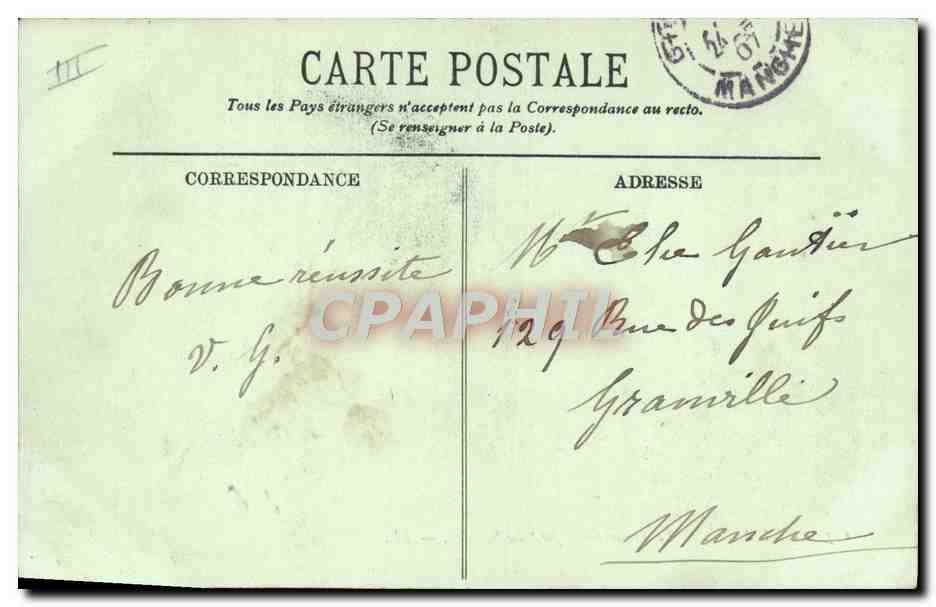 III
CARTE POSTALE
Tous les Pays étrangers n'acceptent pas la Correspondance au recto.
(Se renseigner à la Poste).
24
07
MANCHE
CORRESPONDANCE
ADRESSE
Bonne réussite
V. G.
Mr Elie Gautier
129 Rue des Juifs
Granville
Manche
CPAPHIL